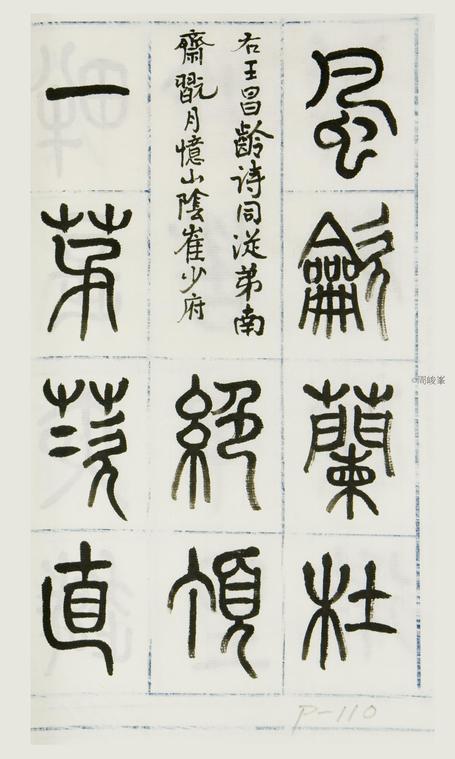 風龡蘭杜
右王昌齡詩同從弟南
齋翫月憶山陰崔少府
絕頂
一茅茨直
©周峻峯
P-110